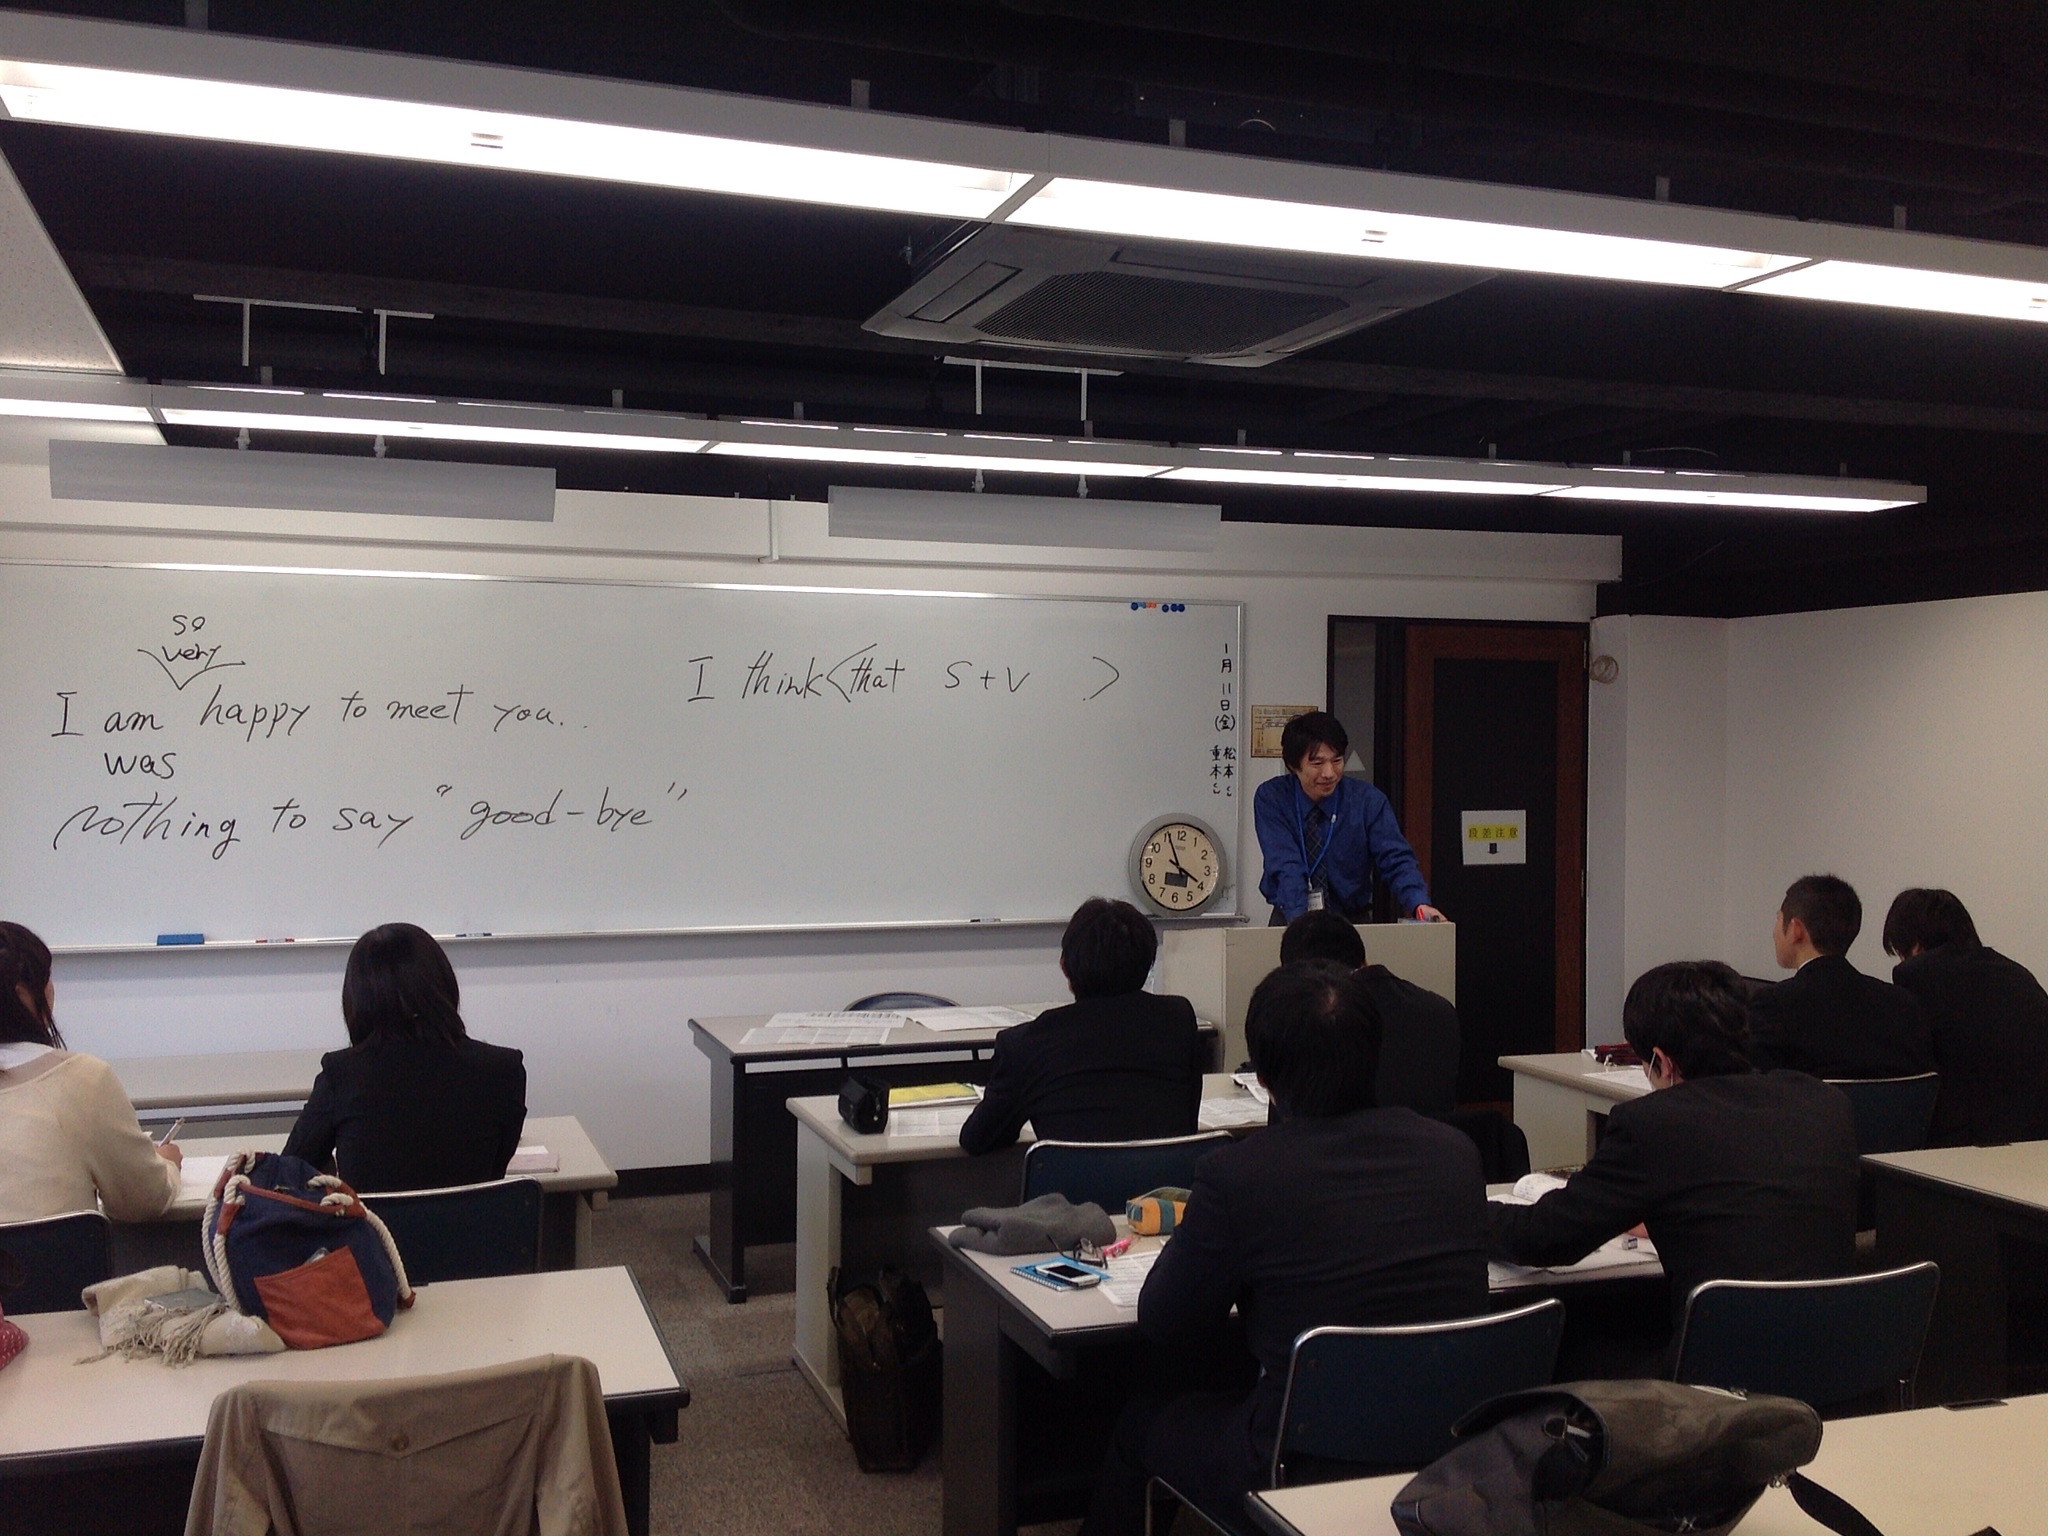 so
very
I am happy to meet you...
was
nothing to say "good-bye"
I think (that S+V )
1月11日(金)
松本
重本
段差注意
12
1
2
3
4
5
6
7
8
9
10
11